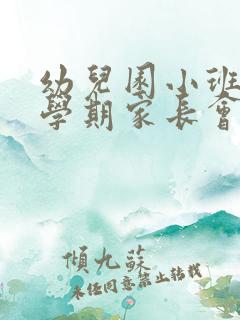 幼兒園小班
學期家長會
傾九蘇
未经同意禁止转载